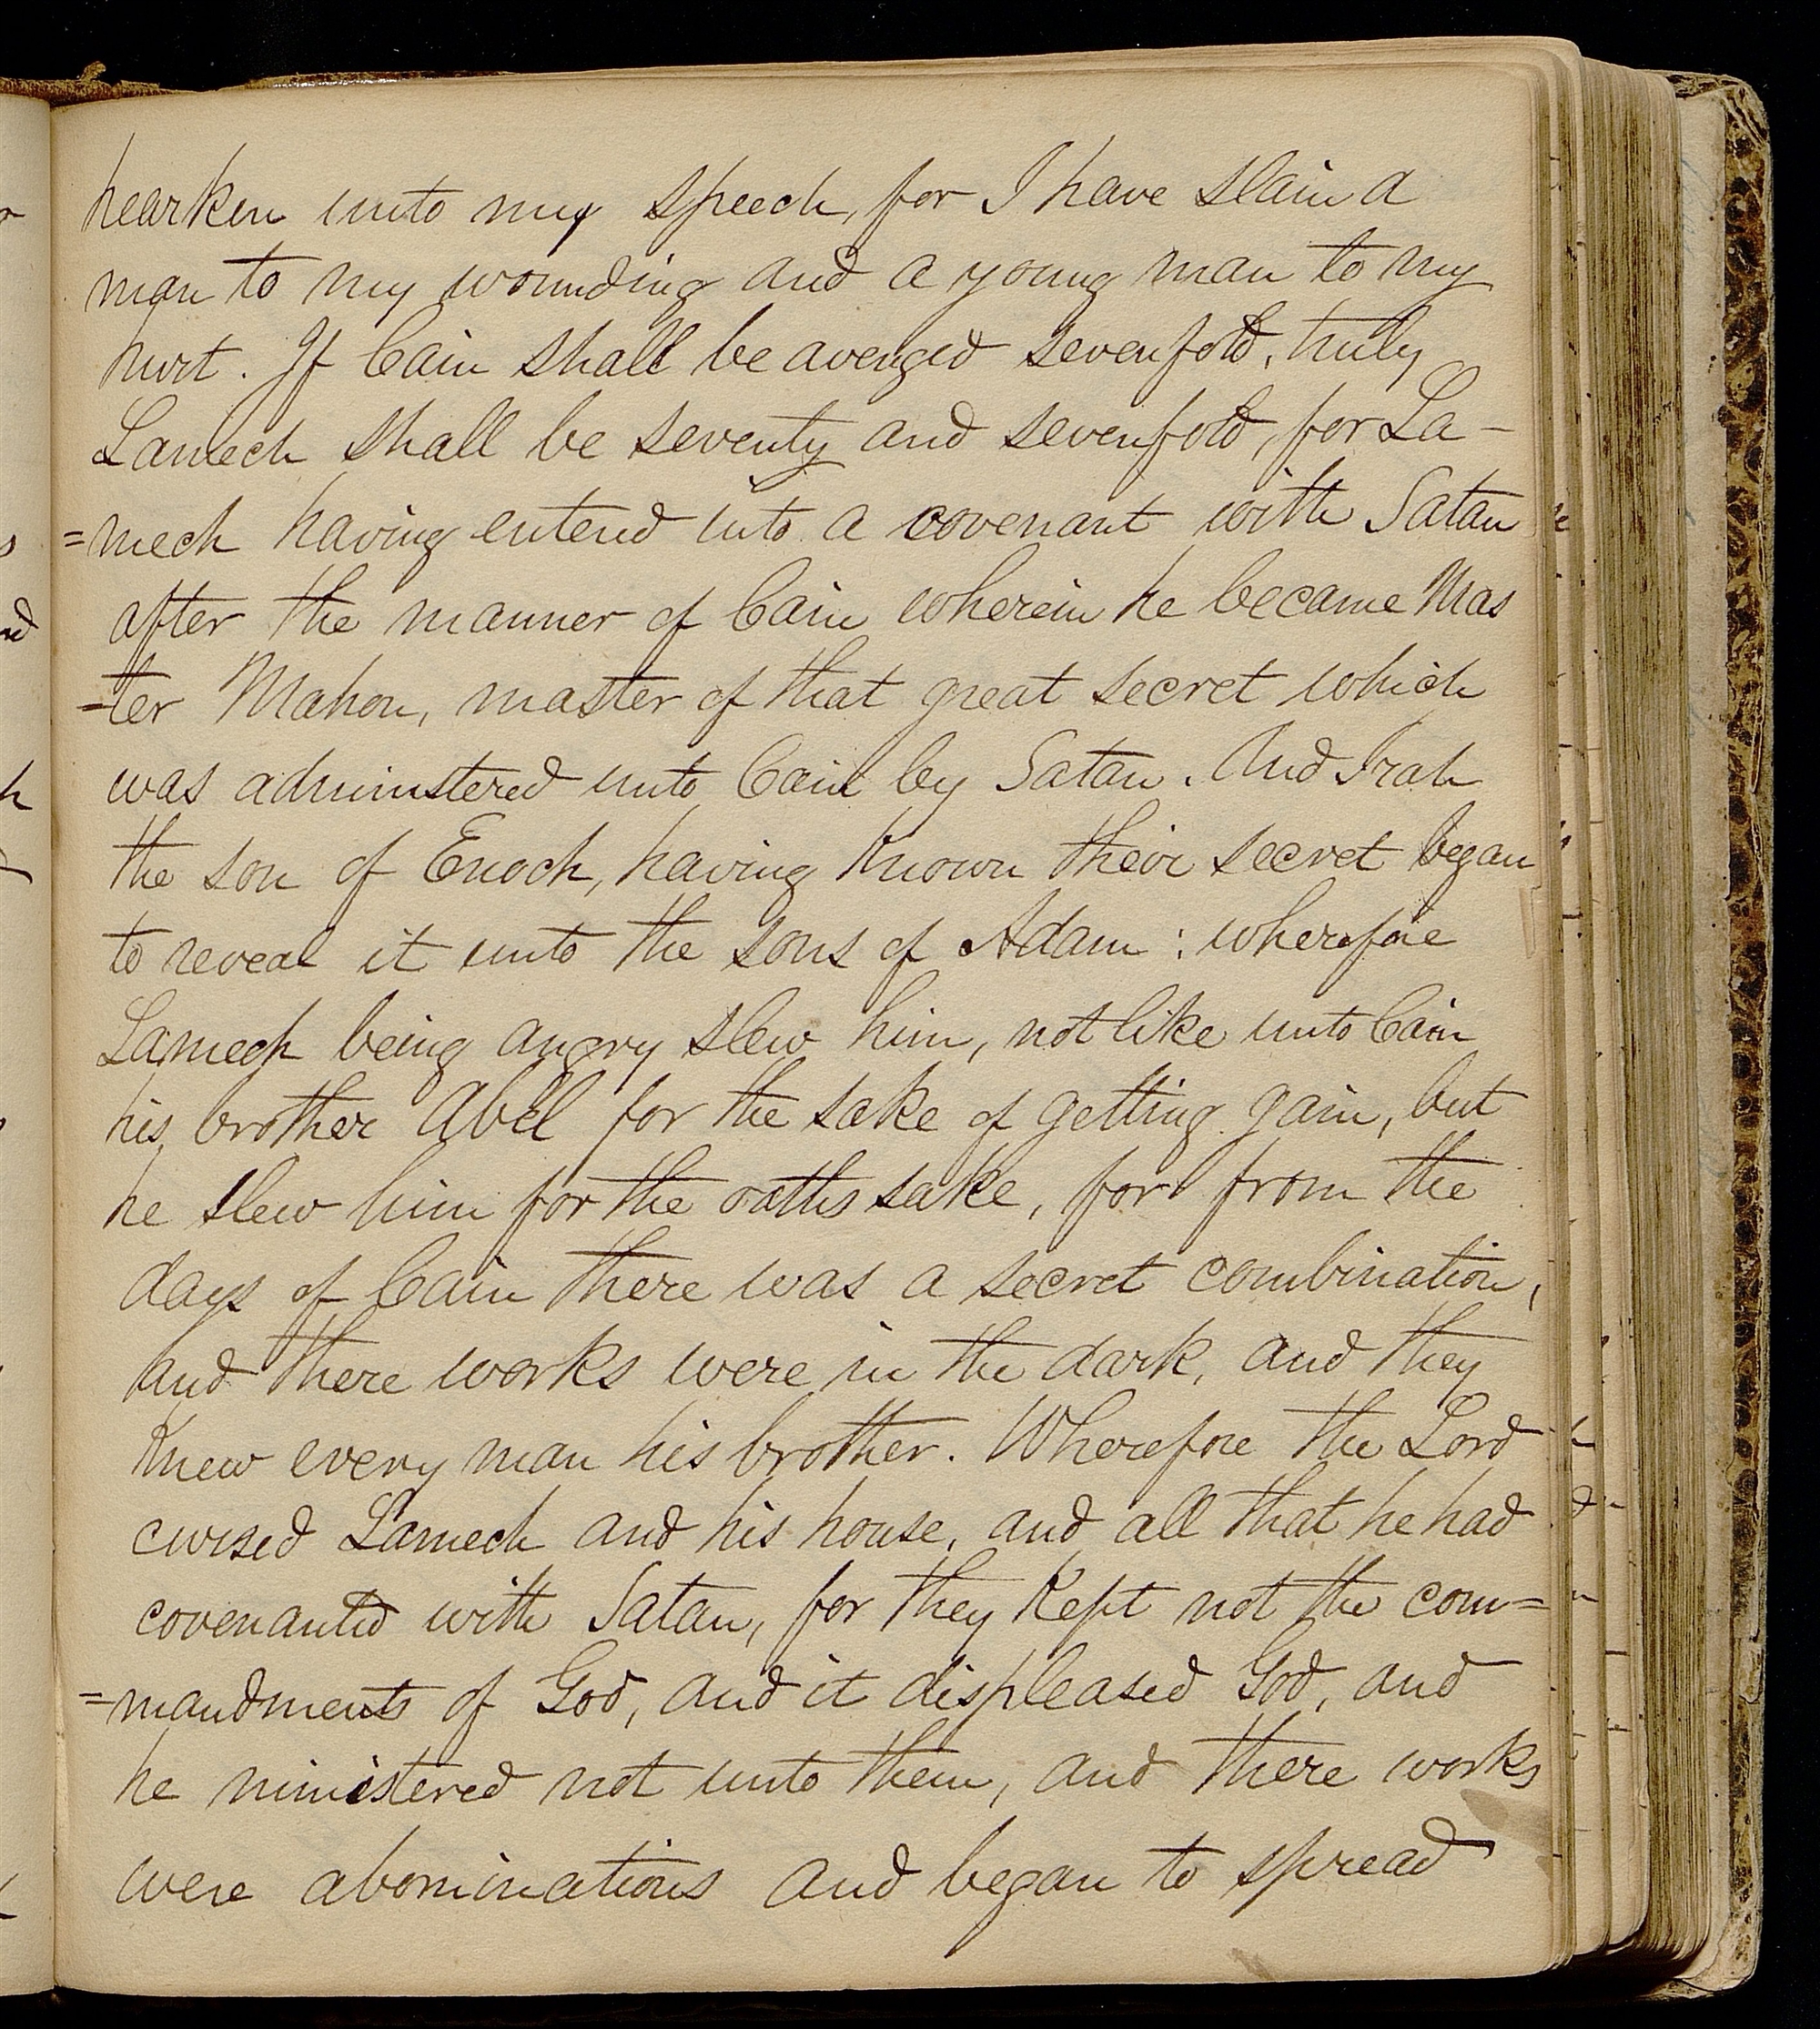 hearken unto my speech, for I have slain a
man to my wounding and a young man to my
hurt. If Cain shall be avenged sevenfold, truly
Lamech shall be seventy and sevenfold, for La-
=mech having entered into a covenant with Satan
after the manner of Cain wherein he became Mas
=ter Mahon, master of that great secret which
was adminstered unto Cain by Satan. And Irah
the son of Enoch, having known their secret began
to reveal it unto the sons of Adam: wherefore
Lamech being angry slew him, not like unto Cain
his brother Abel for the sake of getting gain, but
he slew him for the oaths sake, for from the
days of Cain there was a secret combination,
and there works were in the dark, and they
knew every man his brother. Wherefore the Lord
cursed Lamech and his house, and all that he had
covenanted with Satan, for they kept not the com=
=mandments of God, and it displeased God, and
he ministered not unto them, and there works
were abominations and began to spread